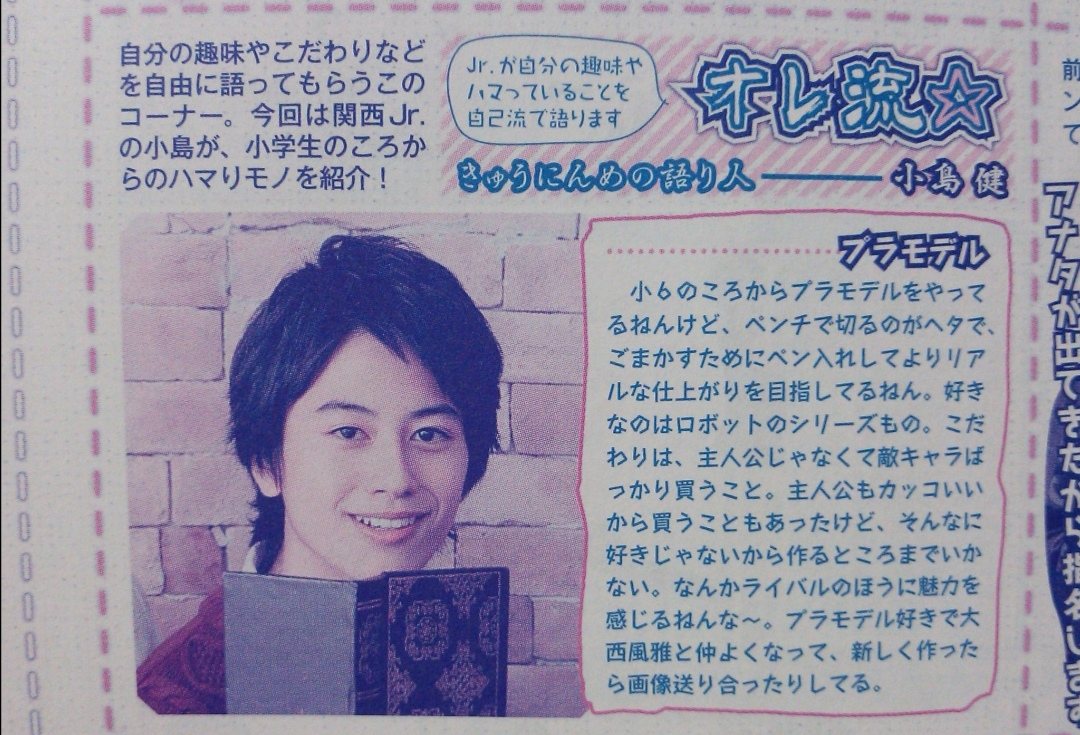 自分の趣味やこだわりなど
を自由に語ってもらうこの
コーナー。今回は関西Jr.
の小島が、小学生のころか
らのハマりモノを紹介！
Jr.が自分の趣味や
ハマっていることを
自己流で語ります
オレ流☆
きゅうにんめの語り人 ― 小島 健
プラモデル
小6のころからプラモデルをやって
るねんけど、ペンチで切るのがヘタで、
ごまかすためにペン入れしてよりリア
ルな仕上がりを目指してるねん。好き
なのはロボットのシリーズもの。こだ
わりは、主人公じゃなくて敵キャラば
っかり買うこと。主人公もカッコいい
から買うこともあったけど、そんなに
好きじゃないから作るところまでいか
ない。なんかライバルのほうに魅力を
感じるねんな〜。プラモデル好きで大
西風雅と仲よくなって、新しく作った
ら画像送り合ったりしてる。
前
ン
て
アナタが出てきたから指名します